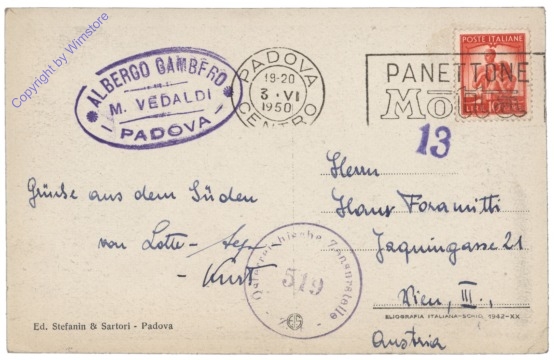 Copyright by Wimstore
ALBERGO GAMBERO
M. VEDALDI
PADOVA
PADOVA
19-20
3 · VI
1950
CENTRO
POSTE ITALIANE
PANETTONE
Motta
13
Grüße aus dem Süden
von Lotte-
-Kurt
Herrn
Hans Foramitti
Jaquingasse 21
Wien, III.,
Austria
Österreichische Zensurstelle
319
Ed. Stefanin & Sartori - Padova
ELIOGRAFIA ITALIANA-SCHIO, 1942-XX